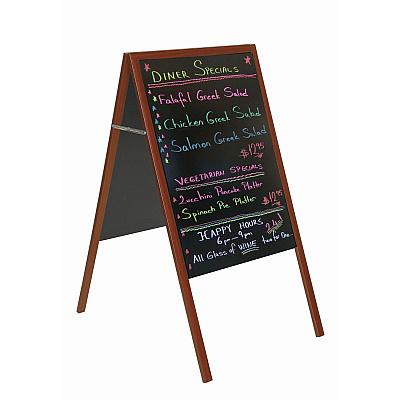 DINER SPECIALS
Falaful Greek Salad
Chicken Greek Salad
Salmon Greek Salad
$12.95
VEGETARIAN SPECIALS
Zucchini Pancake Platter
Spinach Pie Platter $12.95
HAPPY HOURS
6pm - 9pm 2 4 1
All Glass of WINE two for One...